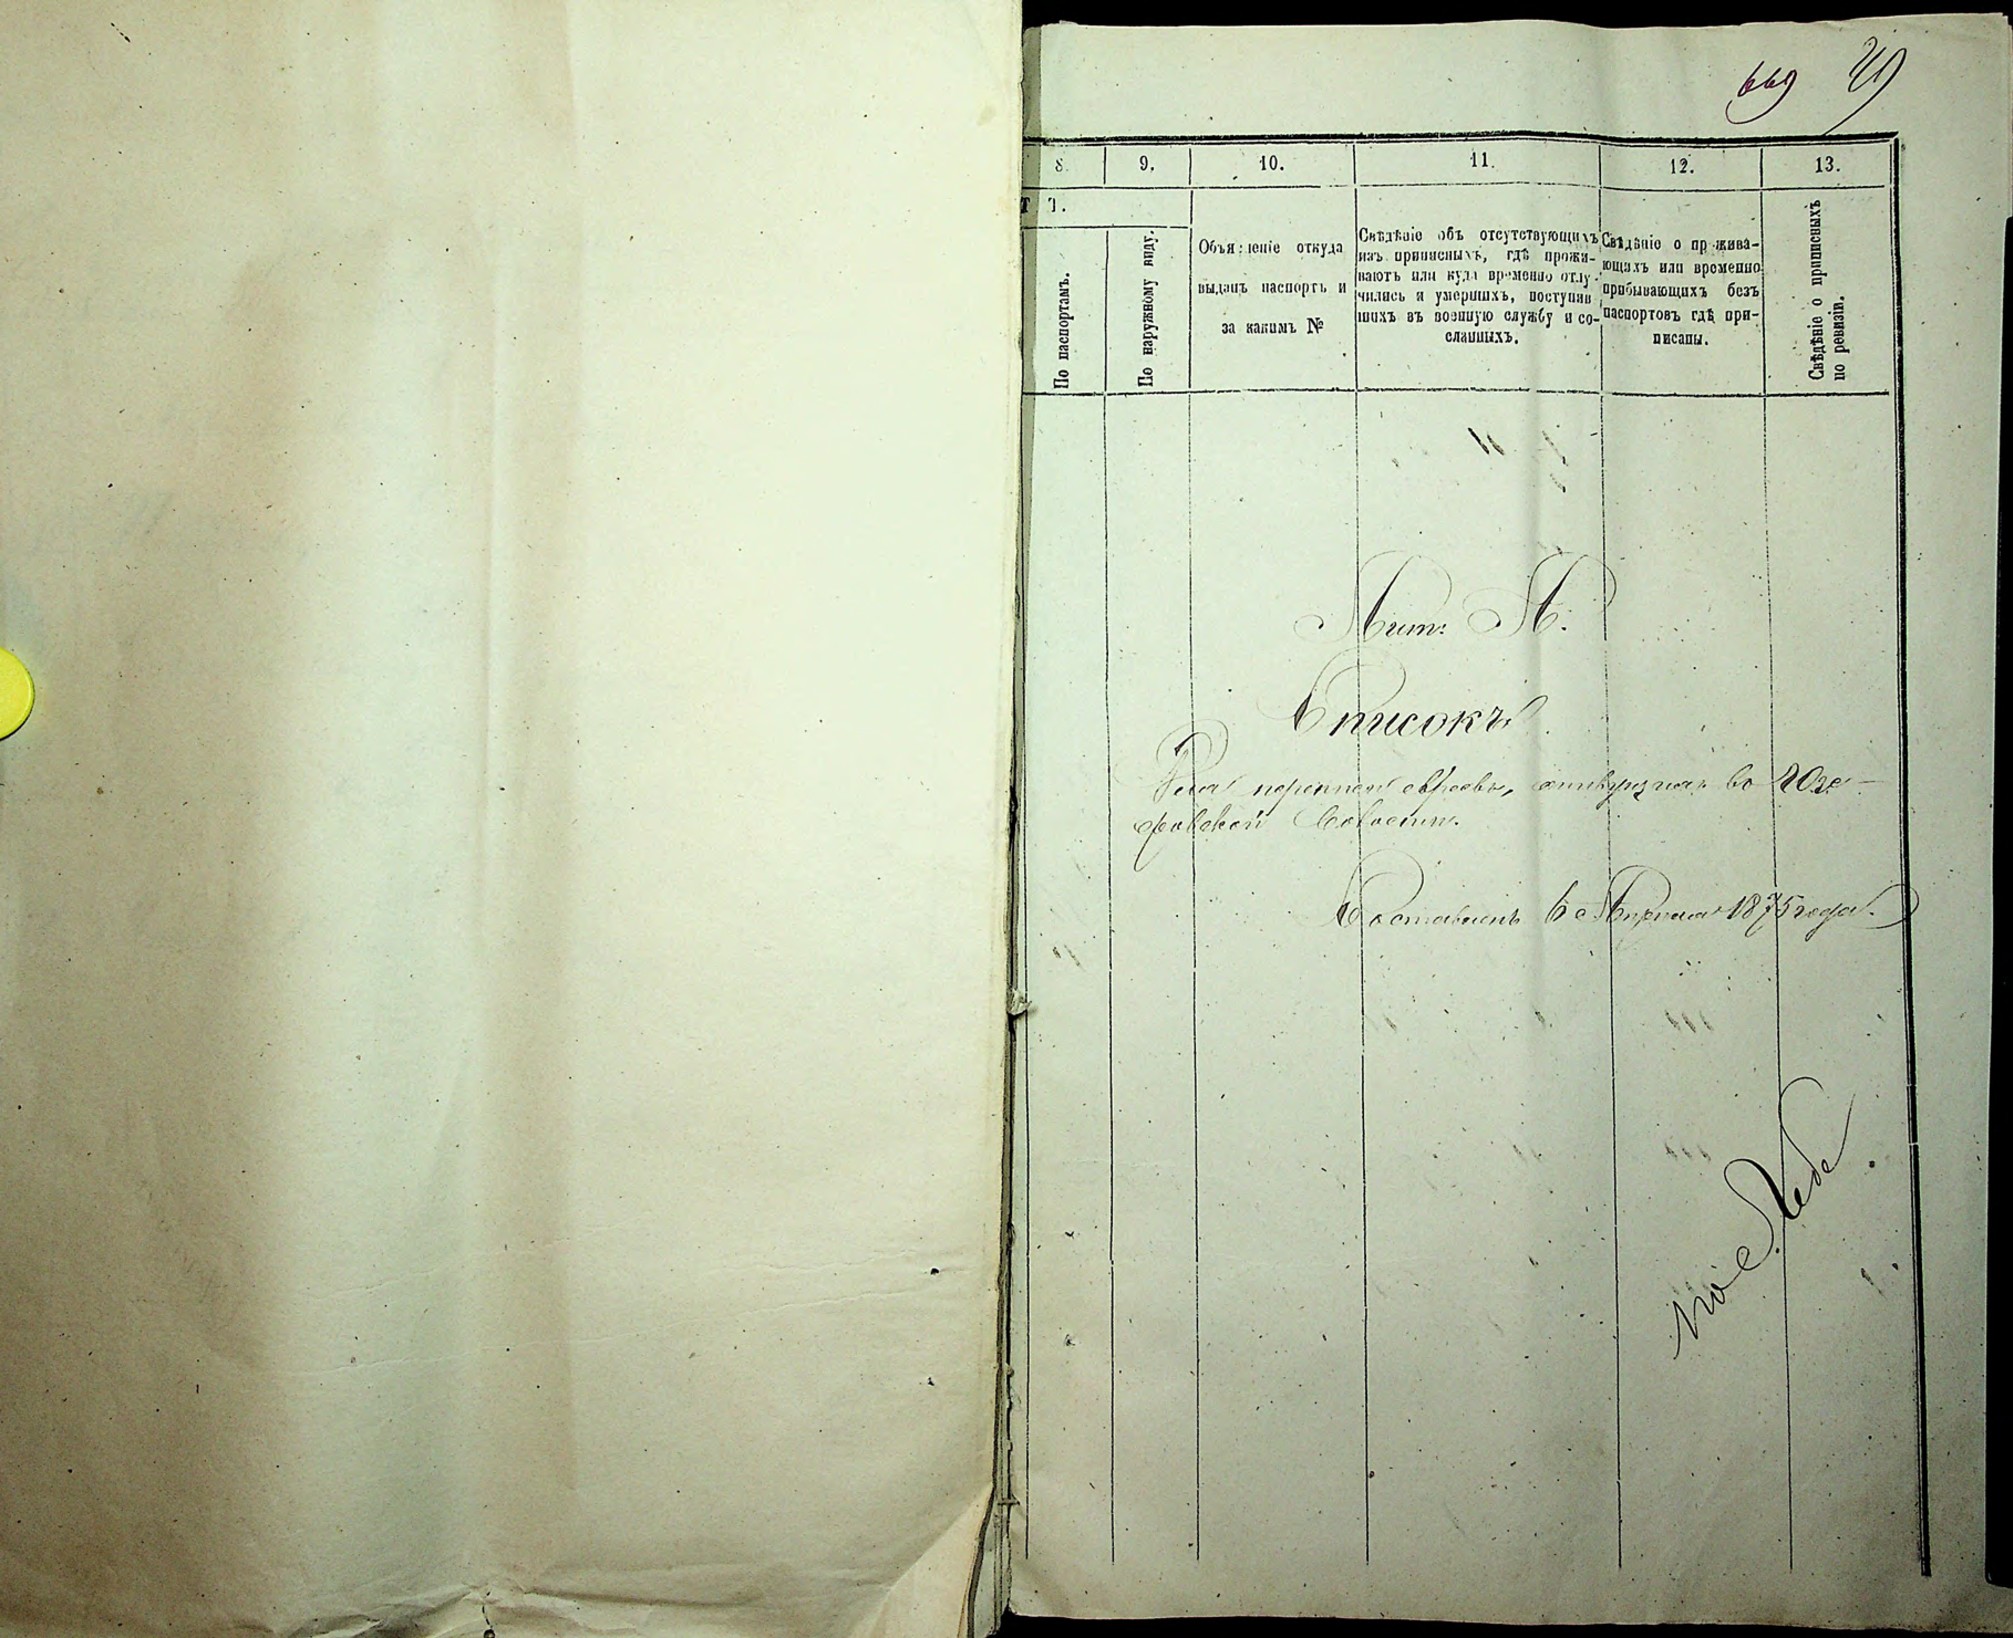 669 29
8. 9. 10. 11. 12. 13.
Т Ъ.
По паспортамъ.
По наружному виду.
Объясненіе откуда
выданъ паспортъ и
за какимъ №
Свѣдѣніе объ отсутствующихъ
изъ приписныхъ, гдѣ прожи-
ваютъ или куда временно отлу-
чились и умершихъ, поступив
шихъ въ военную службу и со-
сланныхъ.
Свѣдѣніе о прожива-
ющихъ или временно
прибывающихъ безъ
паспортовъ гдѣ при-
писаны.
Свѣдѣніе о приписныхъ
по ревизіи.
Лит: А.
Списокъ
евреевъ, во Озе-
ровской волости.
Составленъ 6 Апрѣля 1875 года.